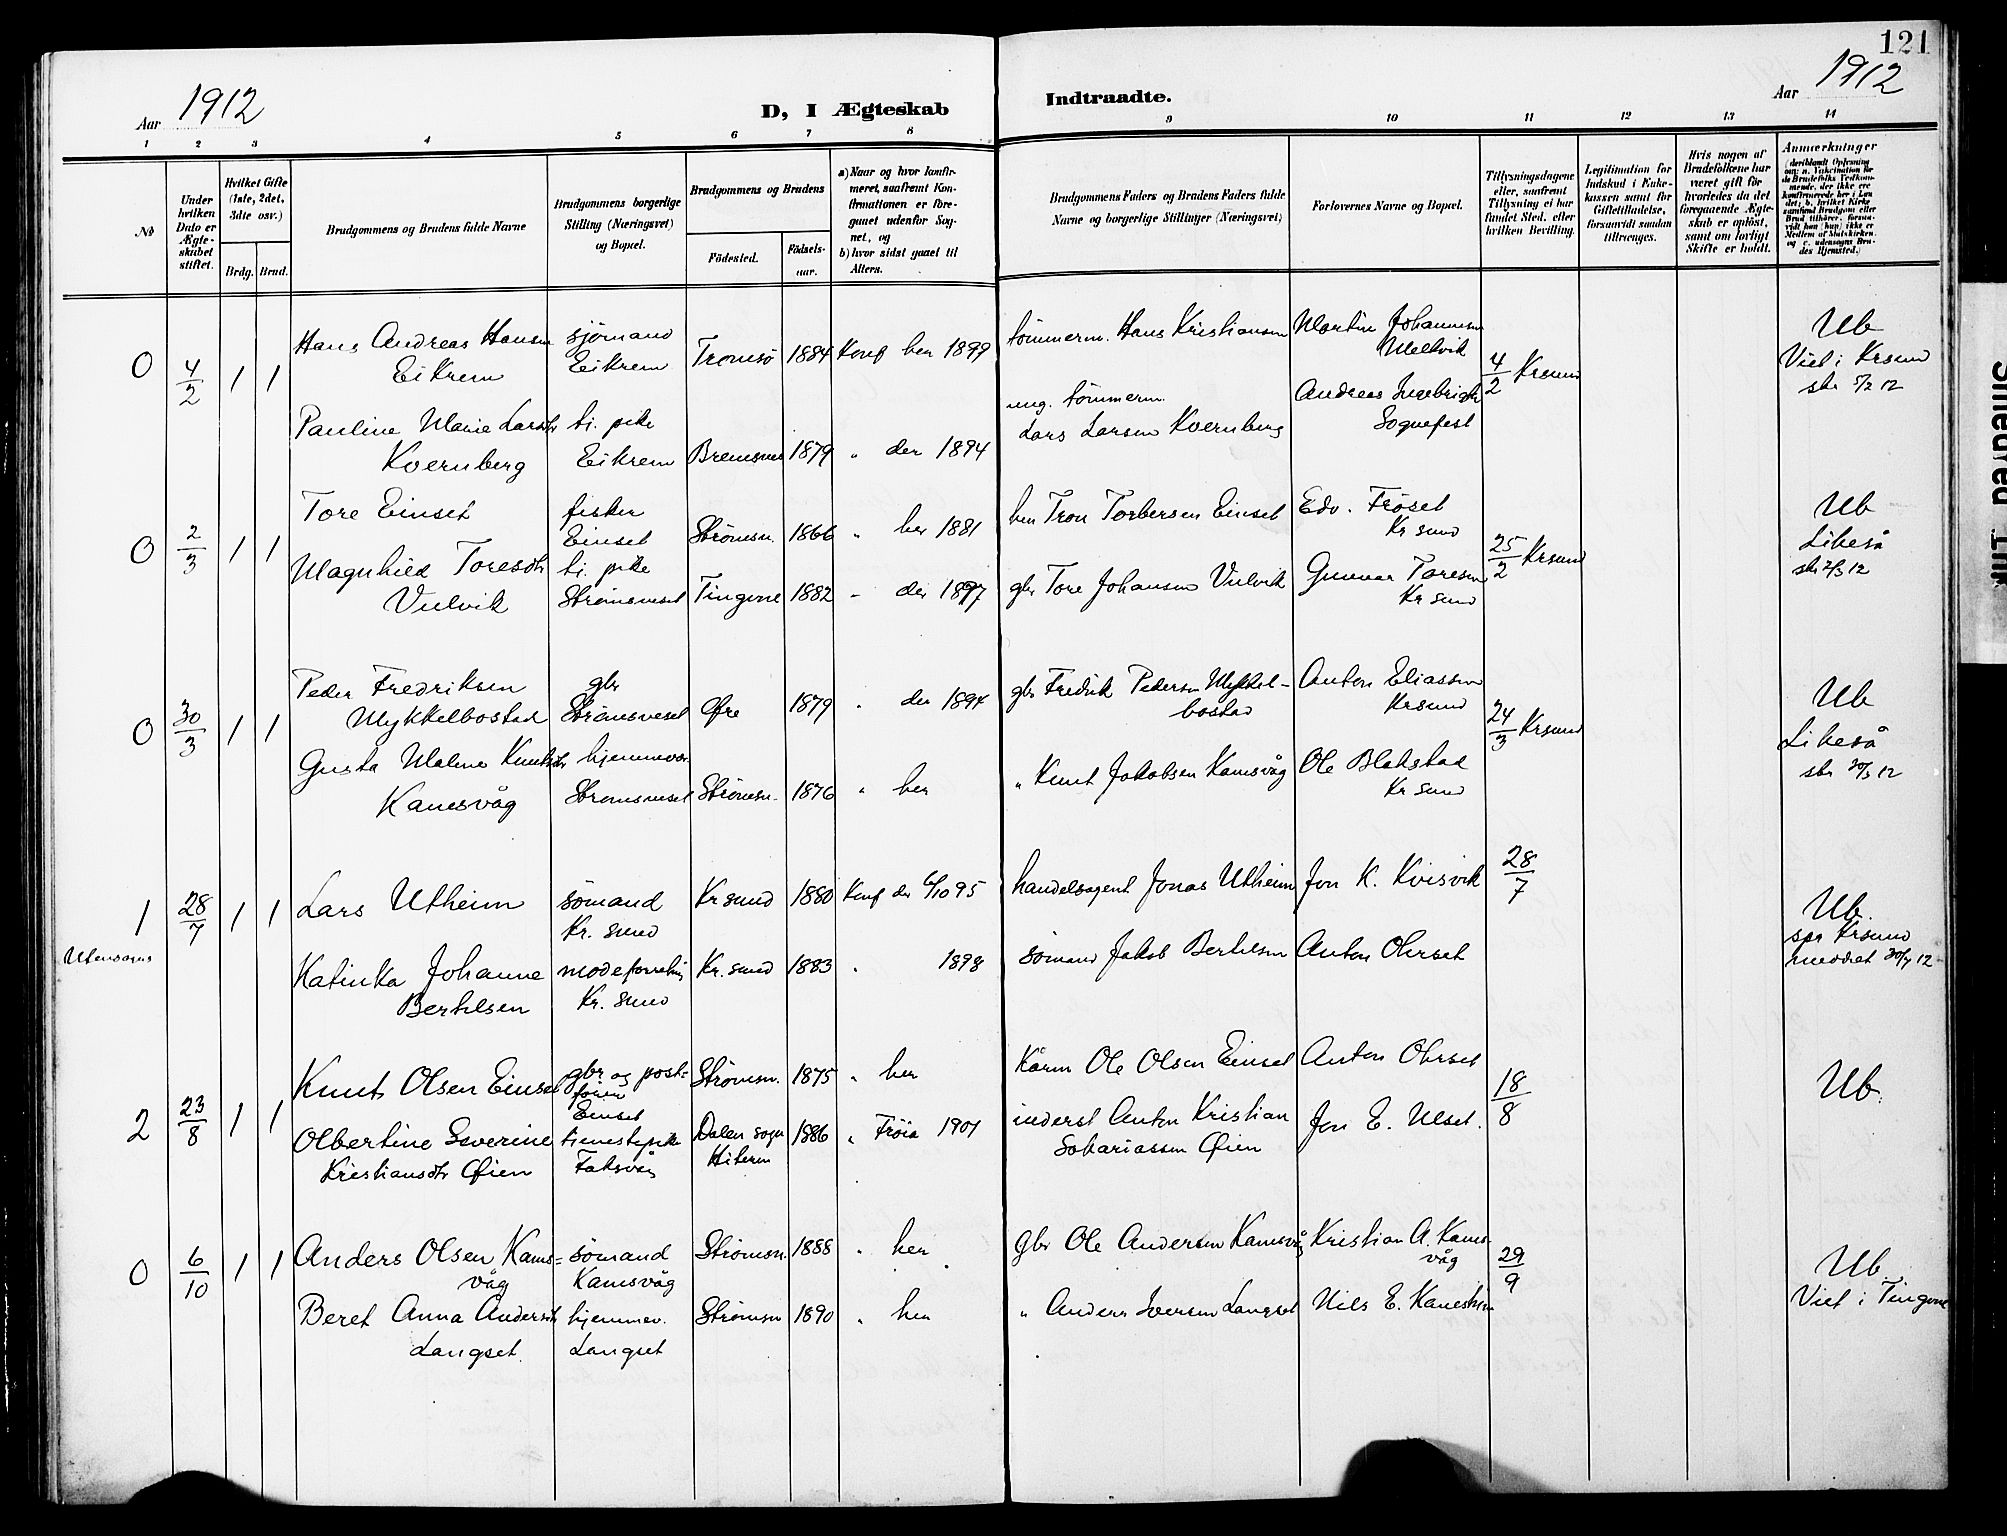 121
Aar 1912
D, I Ægteskab Indtraadte.
Aar 1912
1 2 3 4 5 6 7 8 9 10 11 12 13 14
No
Under hvilken Dato er Ægteskabet stiftet.
Hvilket Gifte (1ste, 2det, 3die osv.)
Brdg. Brud.
Brudgommens og Brudens fulde Navne
Brudgommens borgerlige Stilling (Næringsvei) og Bopæl.
Brudgommens og Brudens
Födested. Födselsaar.
a) Naar og hvor konfirmeret, saafremt Konfirmationen er foregaaet udenfor Sognet, og
b) hvor sidst gaaet til Alters.
Brudgommens Faders og Brudens Faders fulde Navne og borgerlige Stillinger (Næringsvei)
Forlovernes Navne og Bopæl.
Tillysningsdagene eller, saafremt Tillysning ei har fundet Sted, efter hvilken Bevilling.
Legitimation for Indskud i Enkekassen samt for Giftetilladelse, forsaavidt saadan tiltrænges.
Hvis nogen af Brudefolkene har været gift för hvorledes da det foregaaende Ægteskab er oplöst, samt om lovligt Skifte er holdt.
Anmærkninger
0 4/2 1 1 Hans Andreas Hansen sjömand Tromsö 1884 Konf her 1899 tömmerm. Hans Kristiansen Martin Johannsen 4/2 Krsund Ub
Eikrem Eikrem Mellvik Viet i Krsund
Pauline Marie Larsdtr tj. pike Bremsnes 1879 " der 1894 ung. tömmerm. Andreas
Kvernberg Eikrem Lars Larsen Kvernberg Sognefest
0 2/3 1 1 Tore Einset fisker Strömsn. 1866 " her 1881 Tron Torbersen Einset Edv. Fröset 25/2 Krsund Ub
Einset Kr sund
Magnhild Toresdtr tj. pike Tingvoll 1882 - der 1897 gbr Tore Johansen Vulvik Gunnar Toresen
Vulvik Strömsneset Kr sund
0 30/3 1 1 Peder Fredriksen gbr Øre 1879 " der 1894 gbr Fredrik Pedersen Mykkelbostad Anton Eliassen 24/3 Krsund Ub
Mykkelbostad Strömsneset Krsund
Gusta Malene Knutsdtr hjemmev. Strömsn. 1876 " her " Knut Jakobsen Kamsvåg Ole Blakstad
Kamsvåg Strömsneset Kr sund
1 28/7 1 1 Lars Utheim sömand Krsund 1880 Konf der 6/10 95 handelsagent Jonas Utheim Jon K. Kvisvik 28/7 Ub.
Utensogns Kr. sund
Katinka Johanne Kr. sund 1883 " 1898 sömand Jakob Berthelsen Anton Ohrset meddelt 30/7 12
Berthelsen Kr. sund
2 23/8 1 1 Knut Olsen Einset gbr og post- Strömsn. 1875 " her Kårm Ole Olsen Einset Anton Ohrset 18/8 Ub.
förer Einset
Olbertine Severine tjenestepike Dalen sogn 1886 " Fröia 1901 inderst Anton Kristian Jon E. Ulset.
Kristiansdtr Øien Faksvåg Hitteren Sakariassen Øien
0 6/10 1 1 Anders Olsen Kams- sömand Strömsn. 1888 " her gbr Ole Andersen Kamsvåg Kristian A. Kams- 29/9 Ub
våg Kamsvåg våg Viet i Tingvoll
Beret Anna Andersdtr hjemmev. Strömsn 1890 " her " Anders Iversen Langset Nils E.
Langset Langset